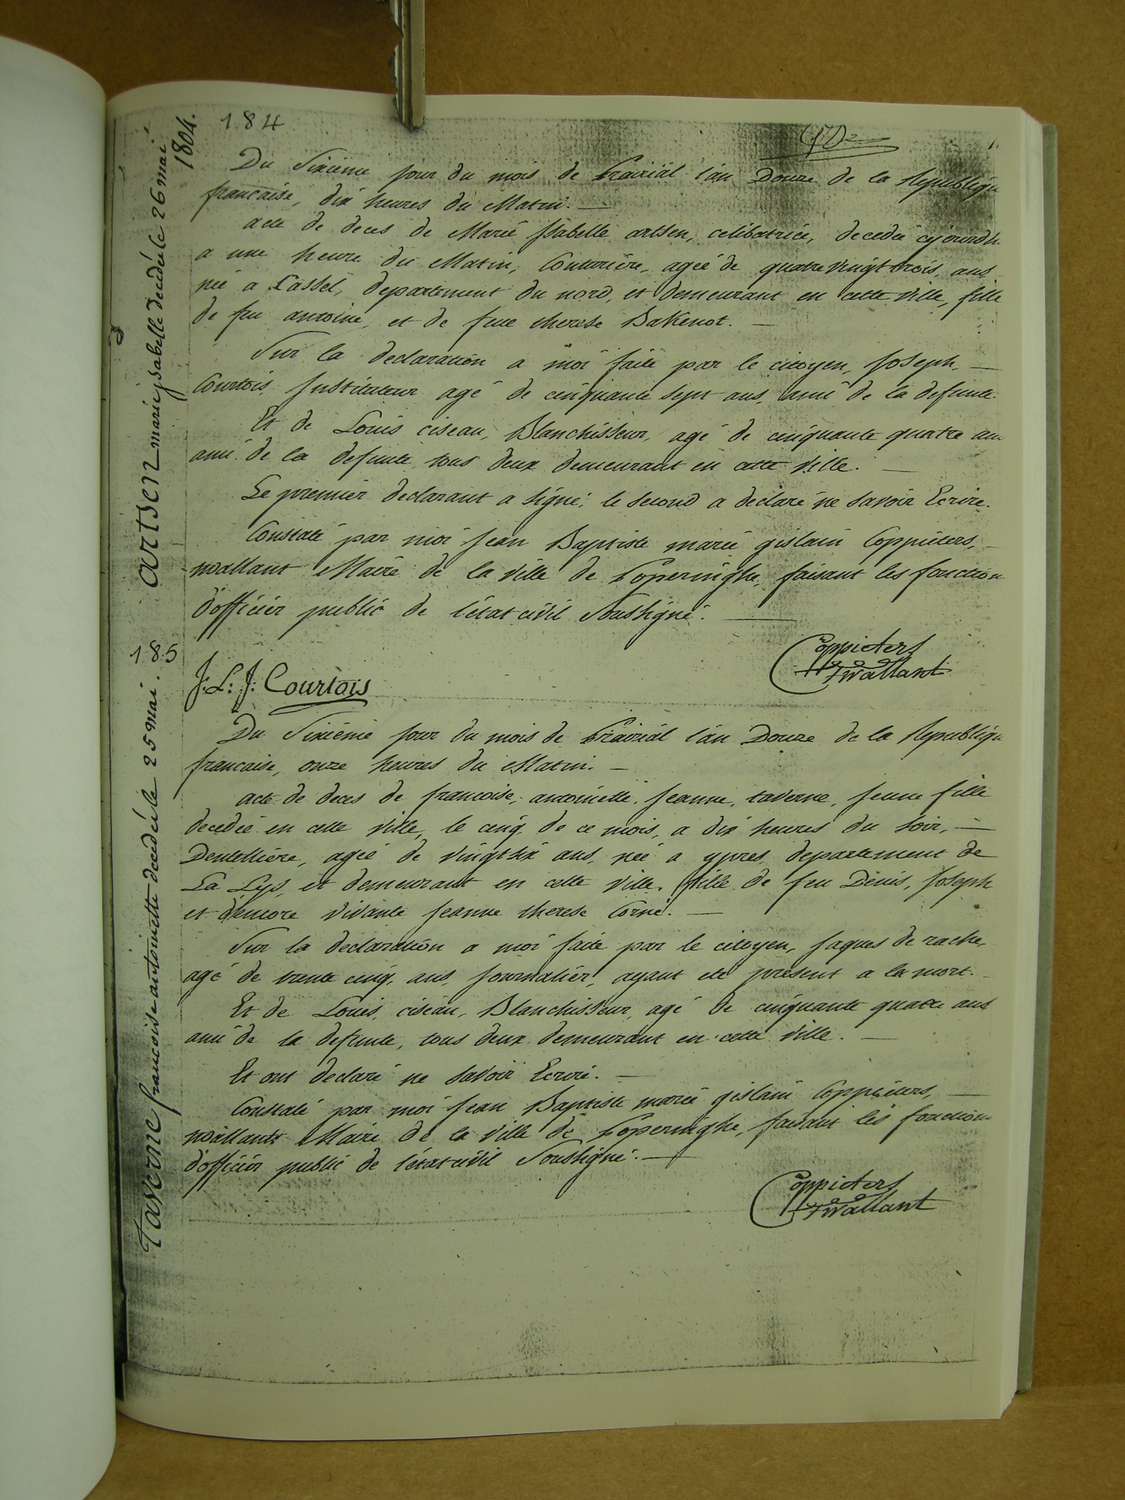 1804.
184
Du Sixième jour du mois de Prairial l'an Douze de la Republiqu
francaise, dix heures du Matin. —
acte de deces de Marie Isabelle artsen, celibatrice, decedée cejourdh
a une heure du Matin, Couturière, ageé de quatrevingt trois ans
neé a Cassel, departement du nord, et demeurant en cette ville, fille
de feu antoine, et de feue therese Bakenot. —
Sur la declaration a moi faite par le citoyen, Joseph —
Courtois, Instituteur agé de cinquante sept ans, ami de la defunte.
Et de Louis ciseau, Blanchisseur, agé de cinquante quatre an
ami de la defunte, tous deux demeurant en cette ville. —
Le premier declarant a signé, le second a declaré ne savoir Ecrire.
Constaté par moi Jean Baptiste marie gislain Coppieters,
wallant Maire de la ville de Poperinghe, faisant les fonction
d'officier public de l'état civil Soussigné. —
Coppieters
Twallant
J: L: J: Courtois
artsen marie isabelle decedée le 26 mai
185
Du Sixième jour du mois de Prairial l'an Douze de la Republiqu
francaise, onze heures du Matin. —
acte de deces de francoise, antoinette, Jeanne, taverne, Jeune fille
decedée en cette ville, le cinq de ce mois, a dix heures du soir, —
Dentellière, ageé de vingtsix ans, neé a ypres, departement de
La Lys, et demeurant en cette ville. fille de feu Denis, Joseph
et d'encore vivante Jeanne therese Corné. —
Sur la declaration a moi faite par le citoyen, Jaques de rache,
agé de trente cinq, ans, Journalier, ayant eté present a la mort.
Et de Louis, ciseau, Blanchisseur, agé de cinquante quatre ans
ami de la defunte, tous deux demeurant en cette ville. —
Et ont declaré ne savoir Ecrire. —
Constaté par moi Jean Baptiste marie gislain Coppieters, —
wallant Maire de la ville de Poperinghe, faisant les fonction
d'officier public de l'état civil Soussigné. —
Coppieters
Twallant
Taverne francoise antoinette decedée le 25 mai.